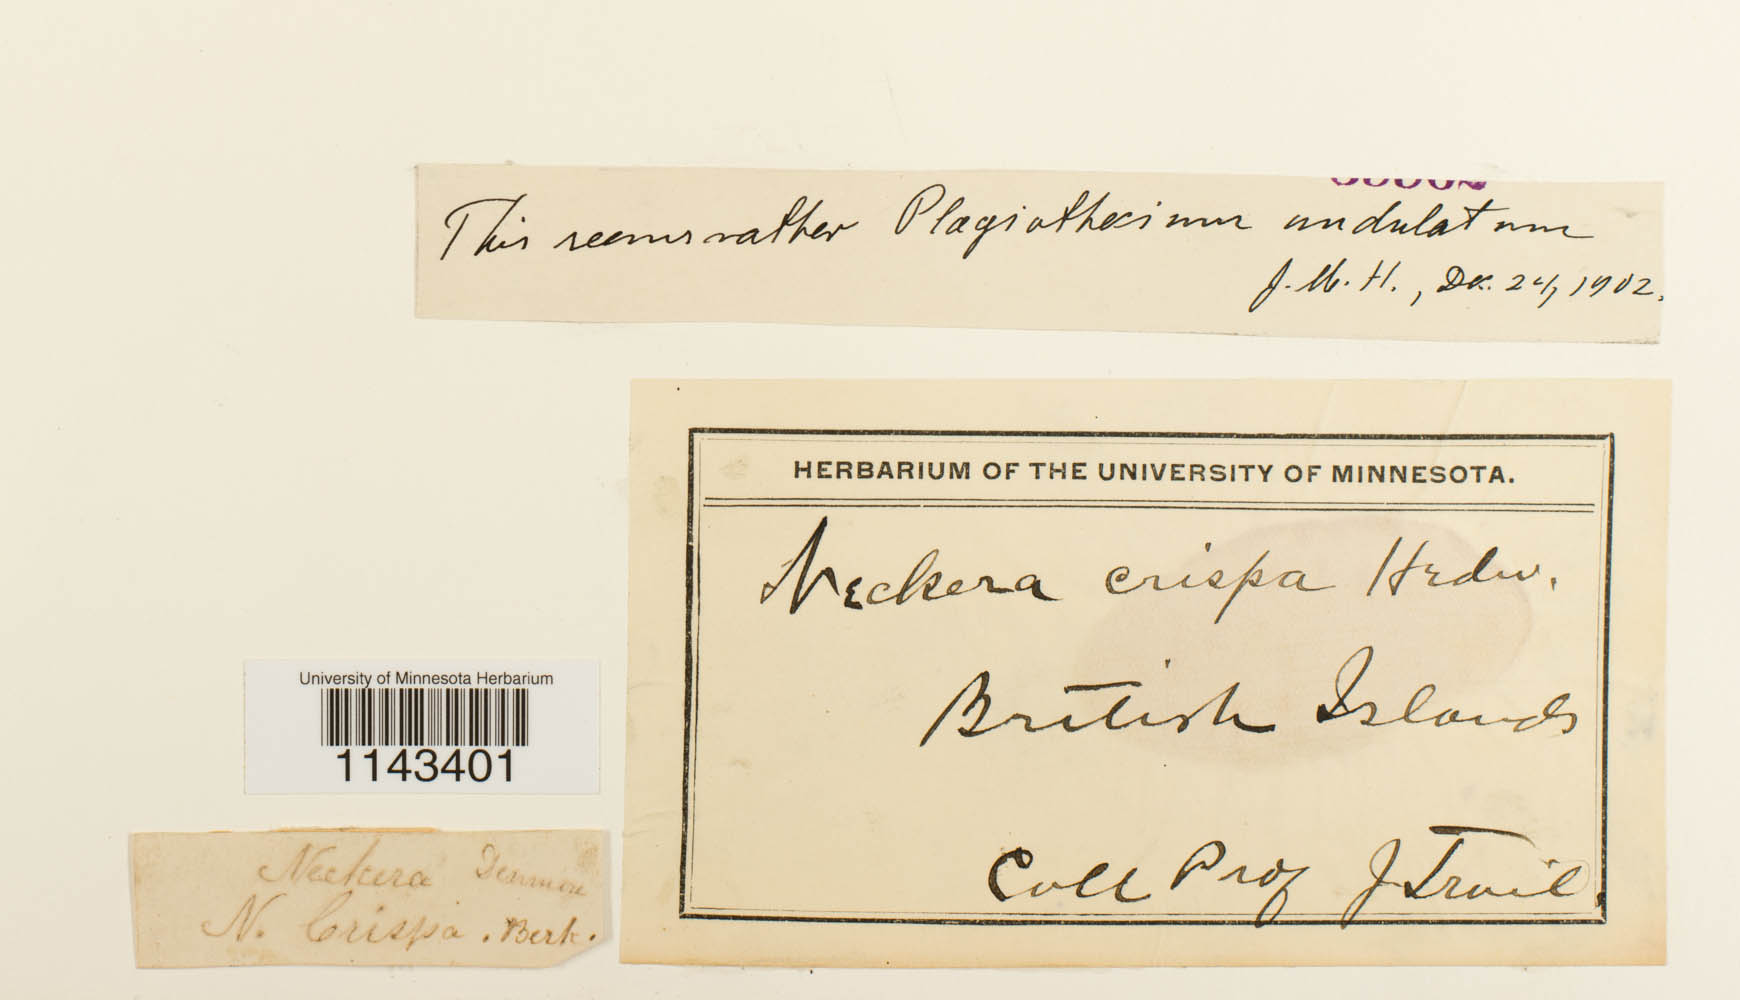 This seems rather Plagiothecium undulatum
J. M. H., Dec. 24, 1902.
HERBARIUM OF THE UNIVERSITY OF MINNESOTA.
Neckera crispa Hedw.
British Islands
Coll Prof J Trail.
University of Minnesota Herbarium
1143401
Neckera
N. Crispa. Berk.